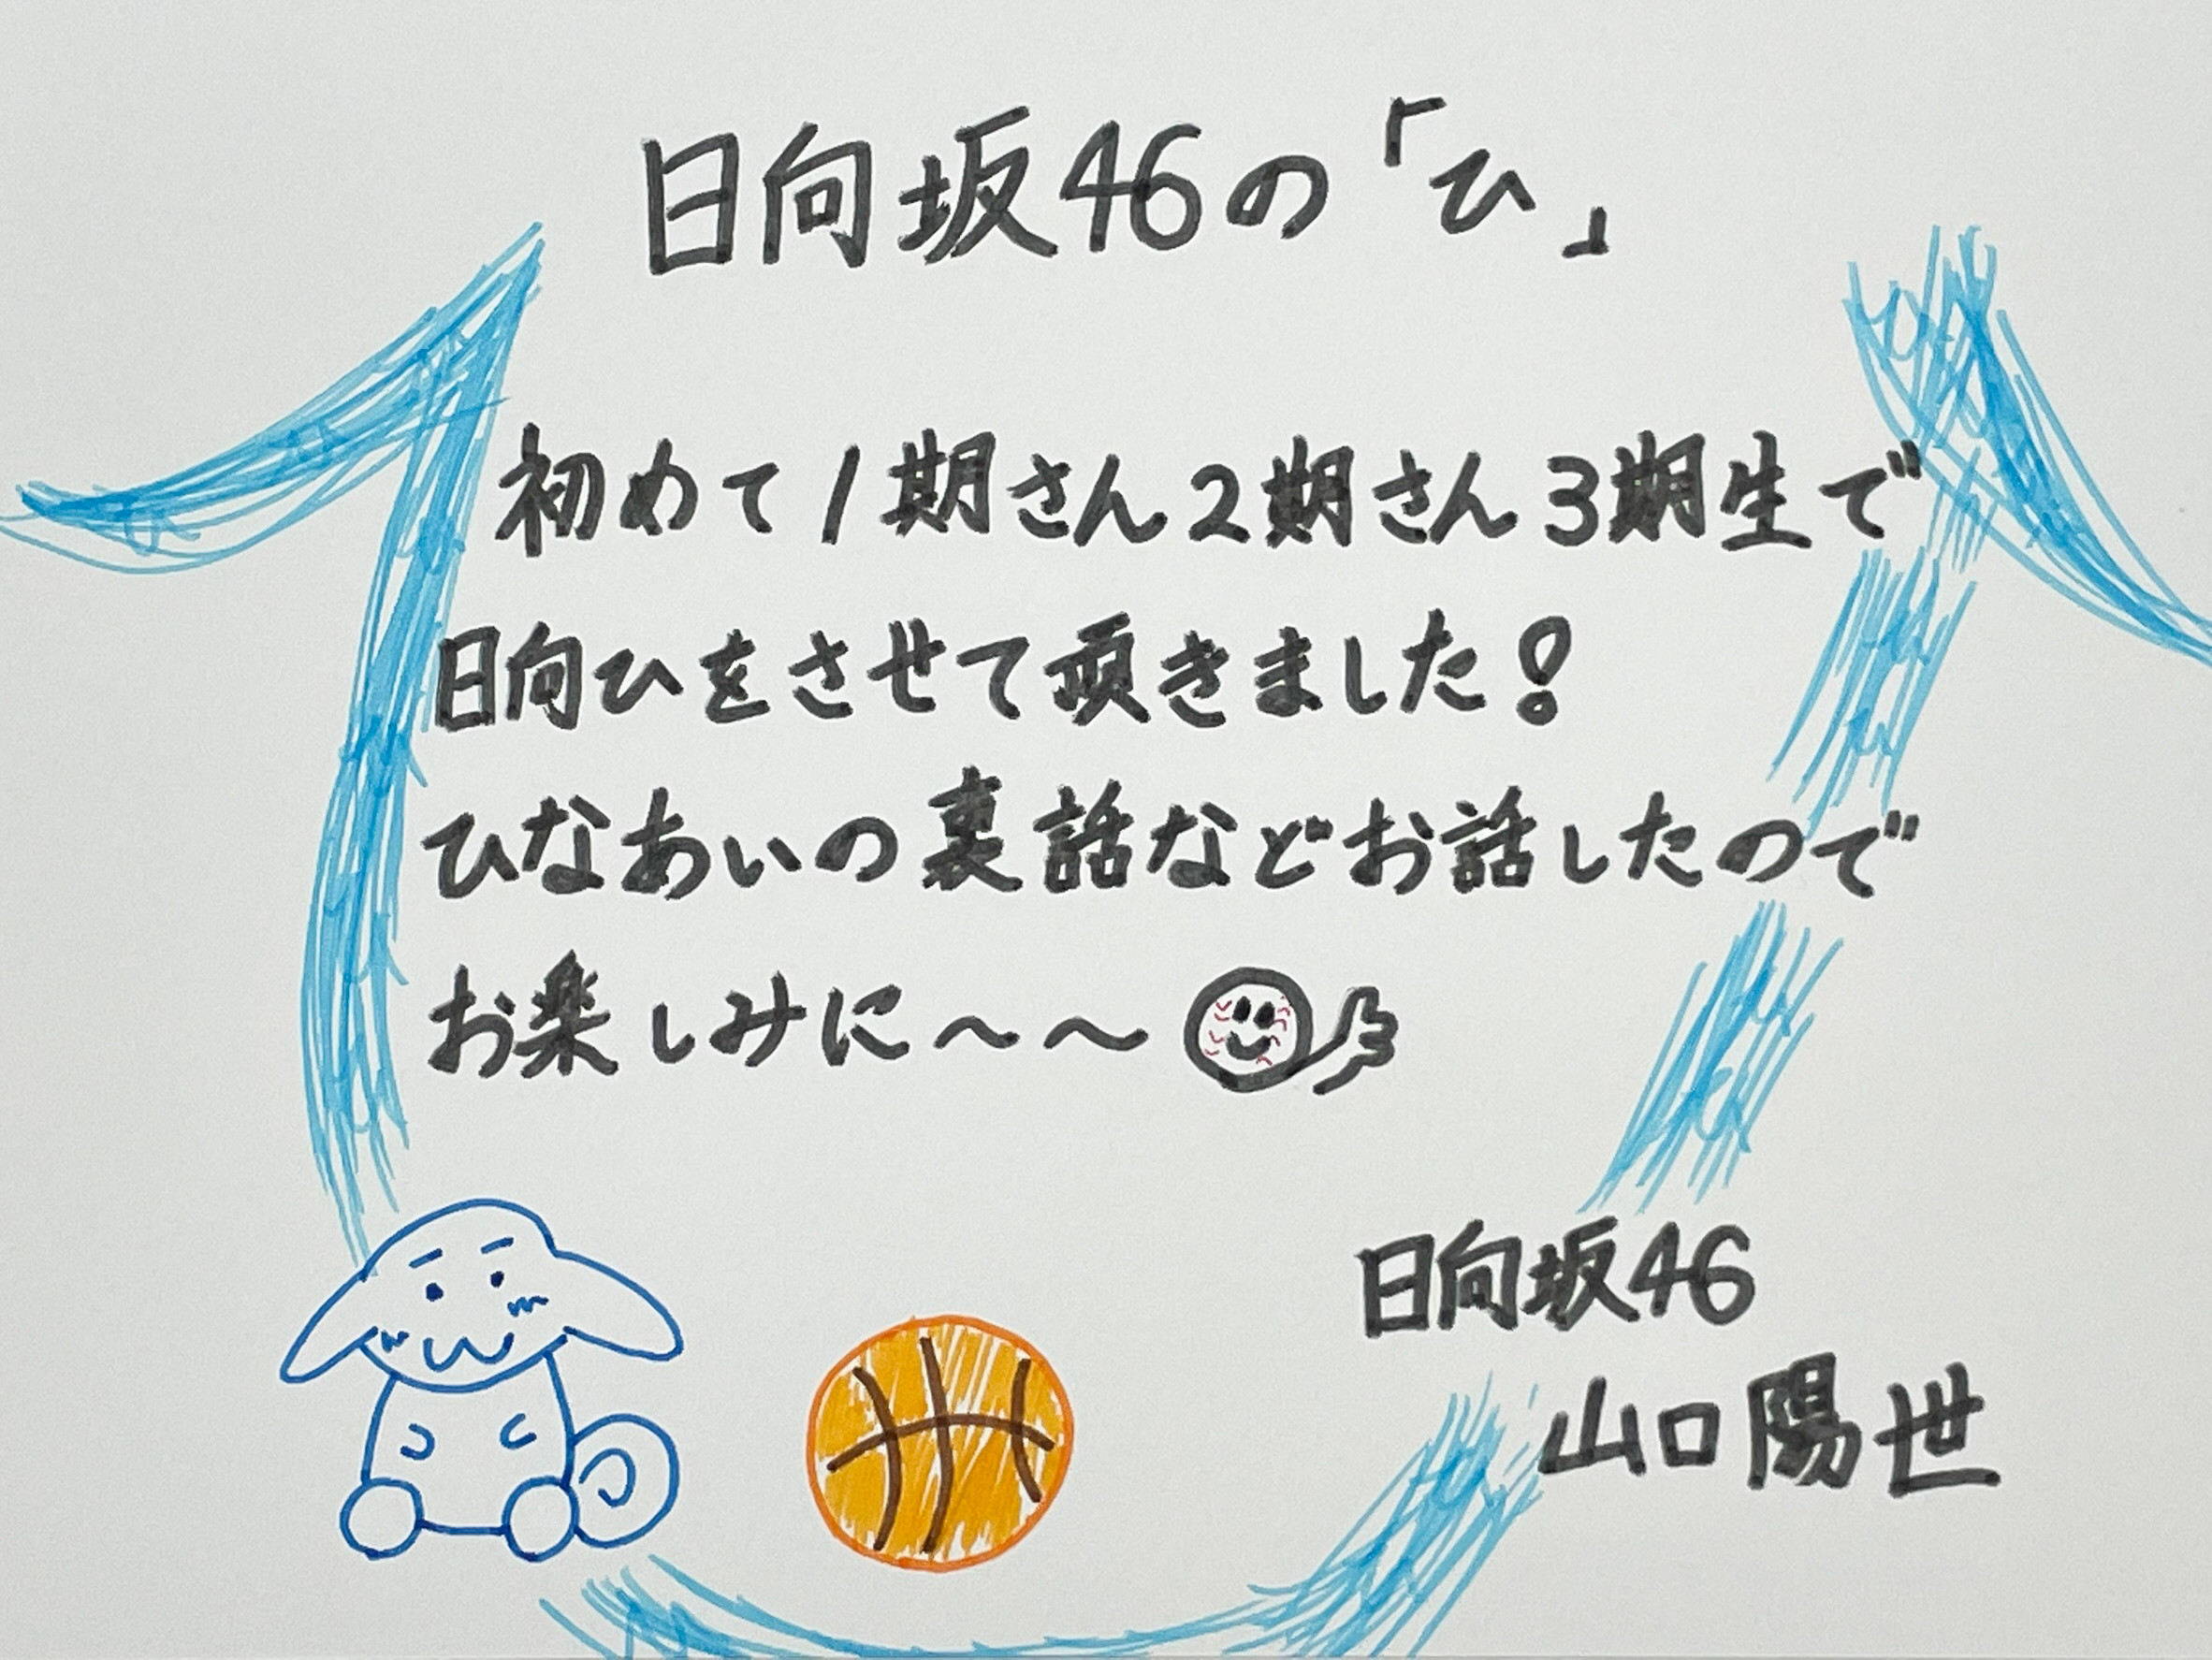 日向坂46の「ひ」
初めて1期さん2期さん3期生で
日向ひをさせて頂きました!
ひなあいの裏話などお話したので
お楽しみに〜〜
日向坂46
山口陽世